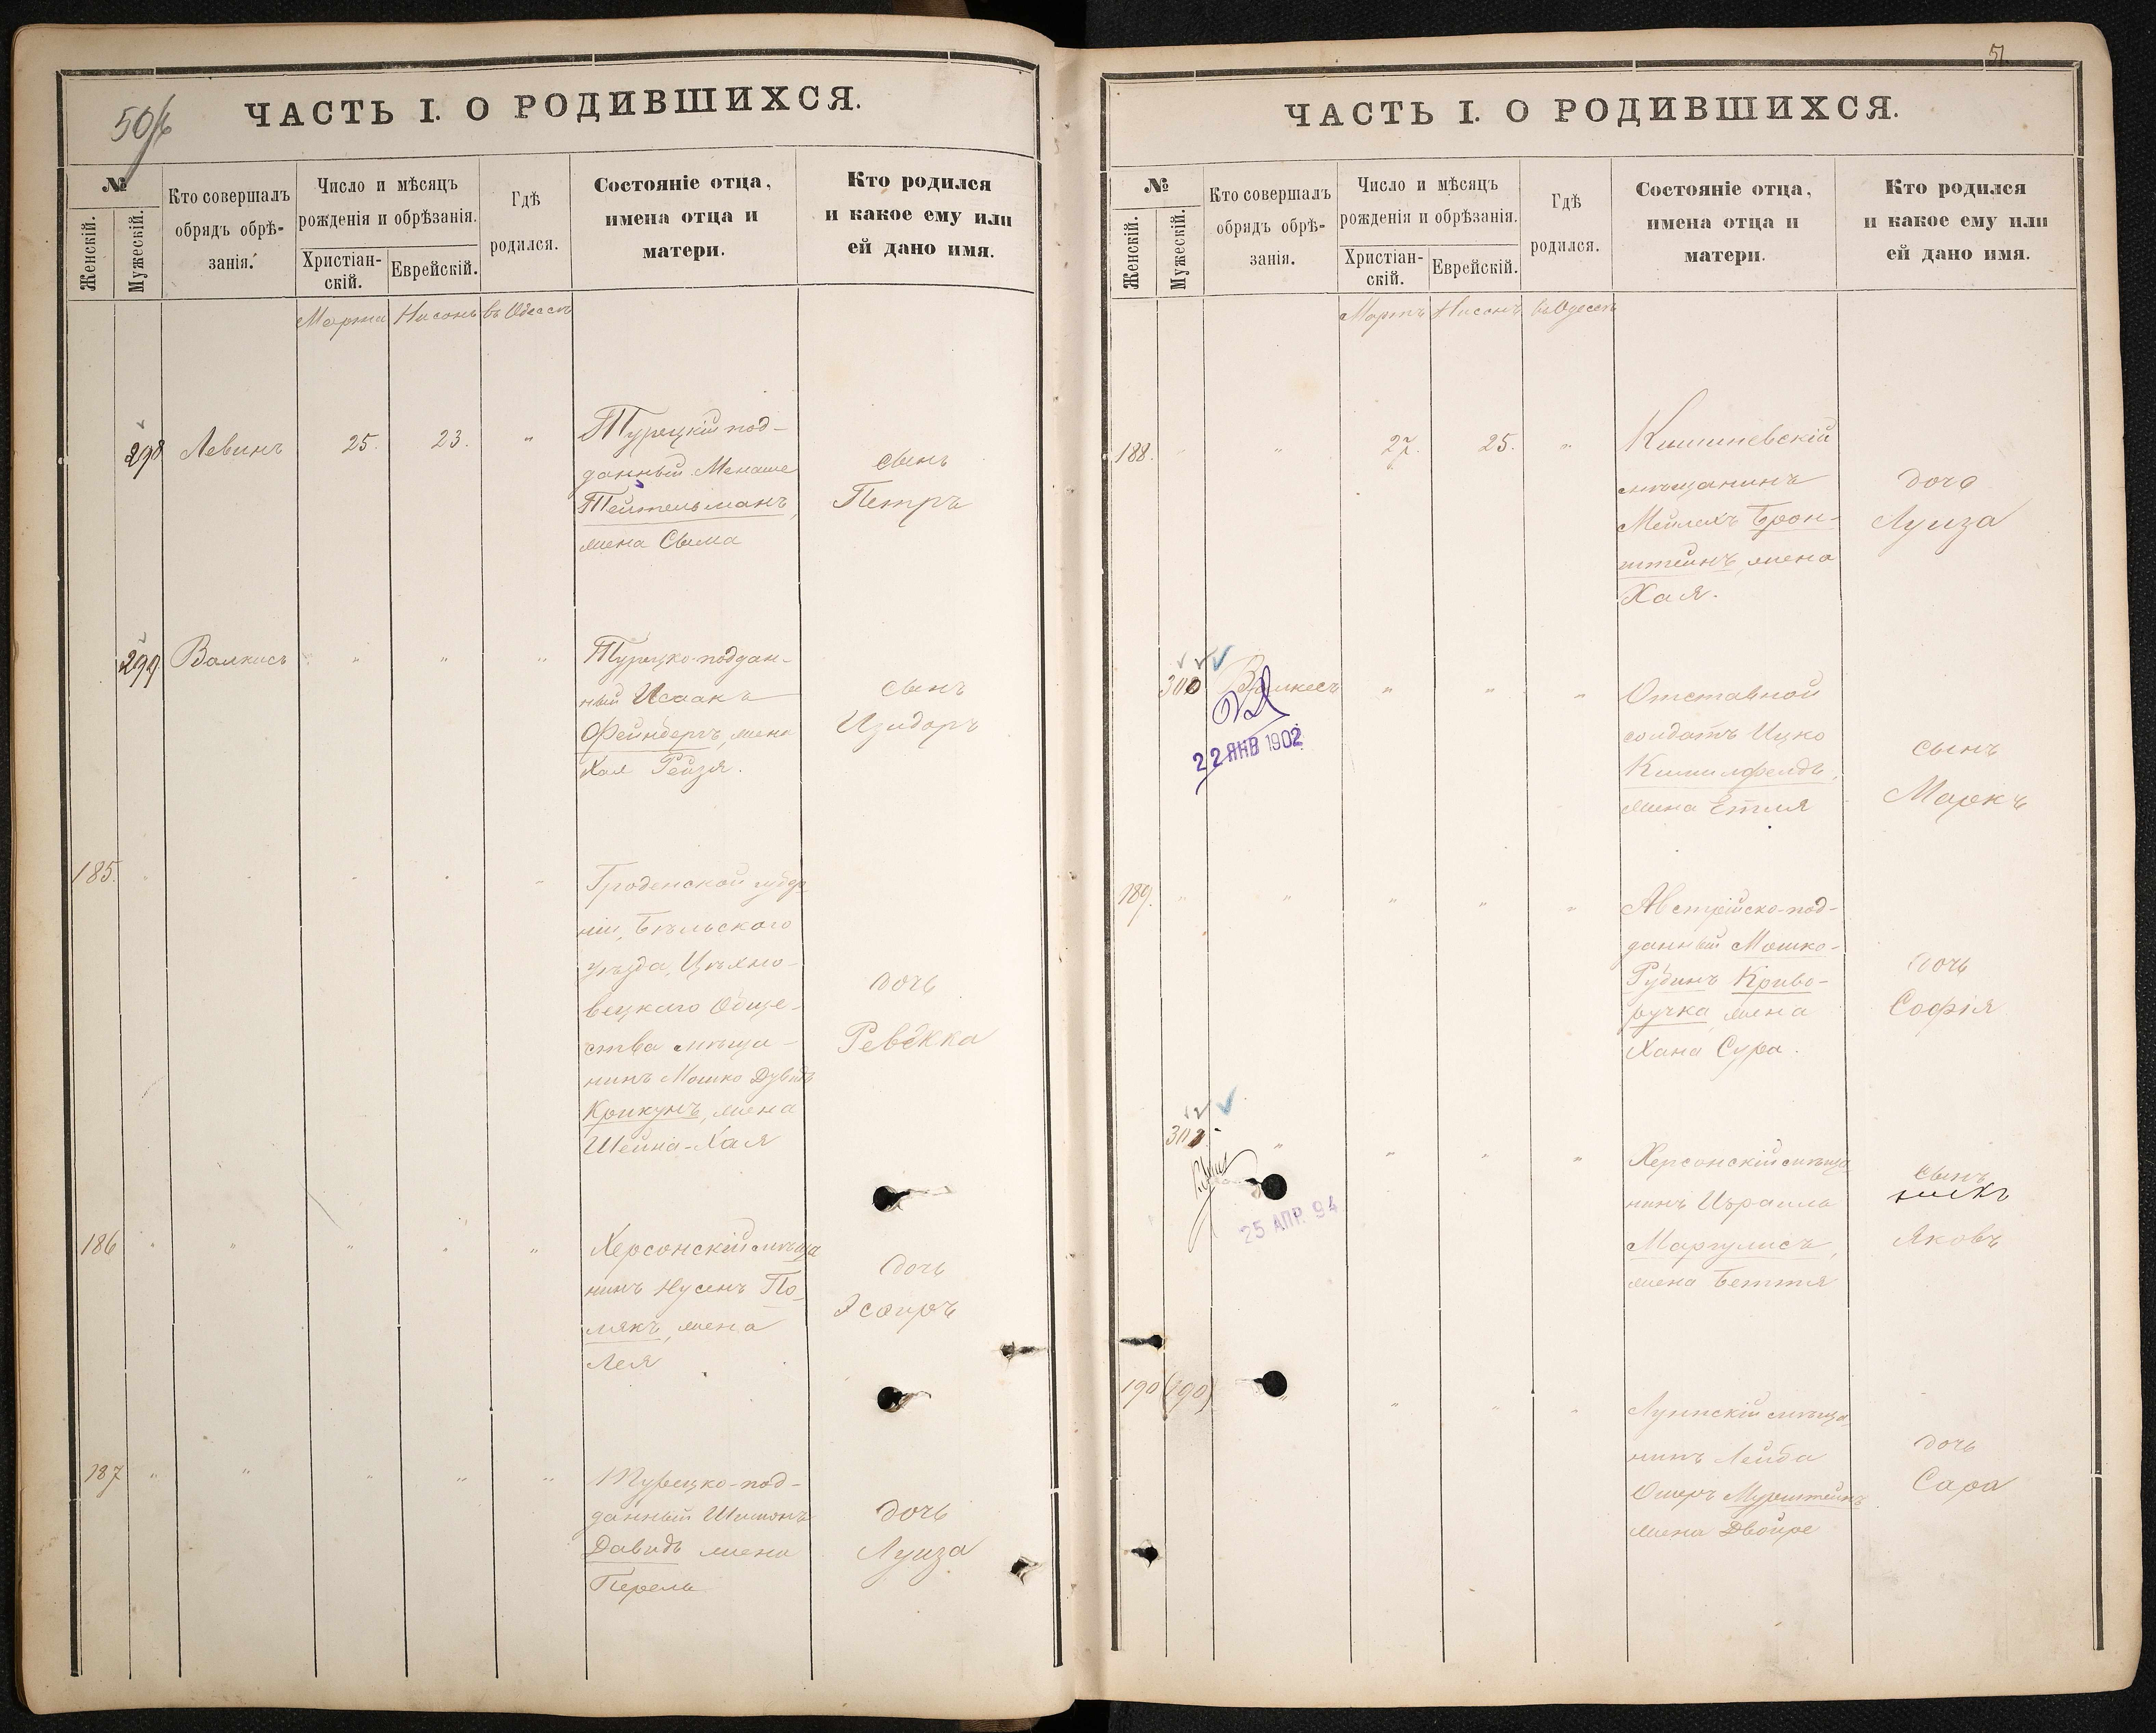 50/б
ЧАСТЬ I. О РОДИВШИХСЯ.
№
Женскій.
Мужескій.
Кто совершалъ
обрядъ обрѣ-
занія.
Число и мѣсяцъ
рожденія и обрѣзанія.
Христіан-
скій.
Еврейскій.
Гдѣ
родился.
Состояніе отца,
имена отца и
матери.
Кто родился
и какое ему или
ей дано имя.
Марта Нисонъ въ Одессѣ
298 Левинъ 25. 23. "
Турецкій под-
данный Менаше
Тейтельманъ,
жена Сыма
сынъ
Петръ
299 Валкисъ " " "
Турецко-поддан-
ный Исаакъ
Фейнбергъ, жена
Хая Рейзя.
сынъ
Изидоръ
185.
Гроденской губер
ніи, Бѣльскаго
уѣзда,
вецкаго Обще-
ства мѣща-
нинъ Мошко Дувидъ
Крикунъ, жена
Шейна-Хая
дочь
Ревекка
186
Херсонскій мѣща
нинъ Нусенъ По-
лякъ, жена
Лея
дочь
Эсѳирь
187
Турецко-под-
данный Шимонъ
Давидъ жена
Перель
дочь
Луиза
51.
ЧАСТЬ I. О РОДИВШИХСЯ.
№
Женскій.
Мужескій.
Кто совершалъ
обрядъ обрѣ-
занія.
Число и мѣсяцъ
рожденія и обрѣзанія.
Христіан-
скій.
Еврейскій.
Гдѣ
родился.
Состояніе отца,
имена отца и
матери.
Кто родился
и какое ему или
ей дано имя.
Мартъ Нисонъ въ Одессѣ
188. " " 27. 25. "
Кишиневскій
мѣщанинъ
Мейлехъ Брон-
штейнъ, жена
Хая.
дочь
Луиза
300 Валкесъ " " "
22 ЯНВ 1902
Отставной
солдатъ Ицко
жена Етля
сынъ
Маркъ
189. " " " " "
Австрійско-под-
данный Мошко-
Рубинъ Криво-
ручка жена
Хана Сура.
дочь
Софія
301. " " " "
25 АПР. 94
Херсонскій мѣща
нинъ Израиль
Маргулисъ,
жена Беття
сынъ
Яковъ
190 (190) " " " "
мѣща
нинъ Лейба
Ошеръ
жена Двойре
дочь
Сара